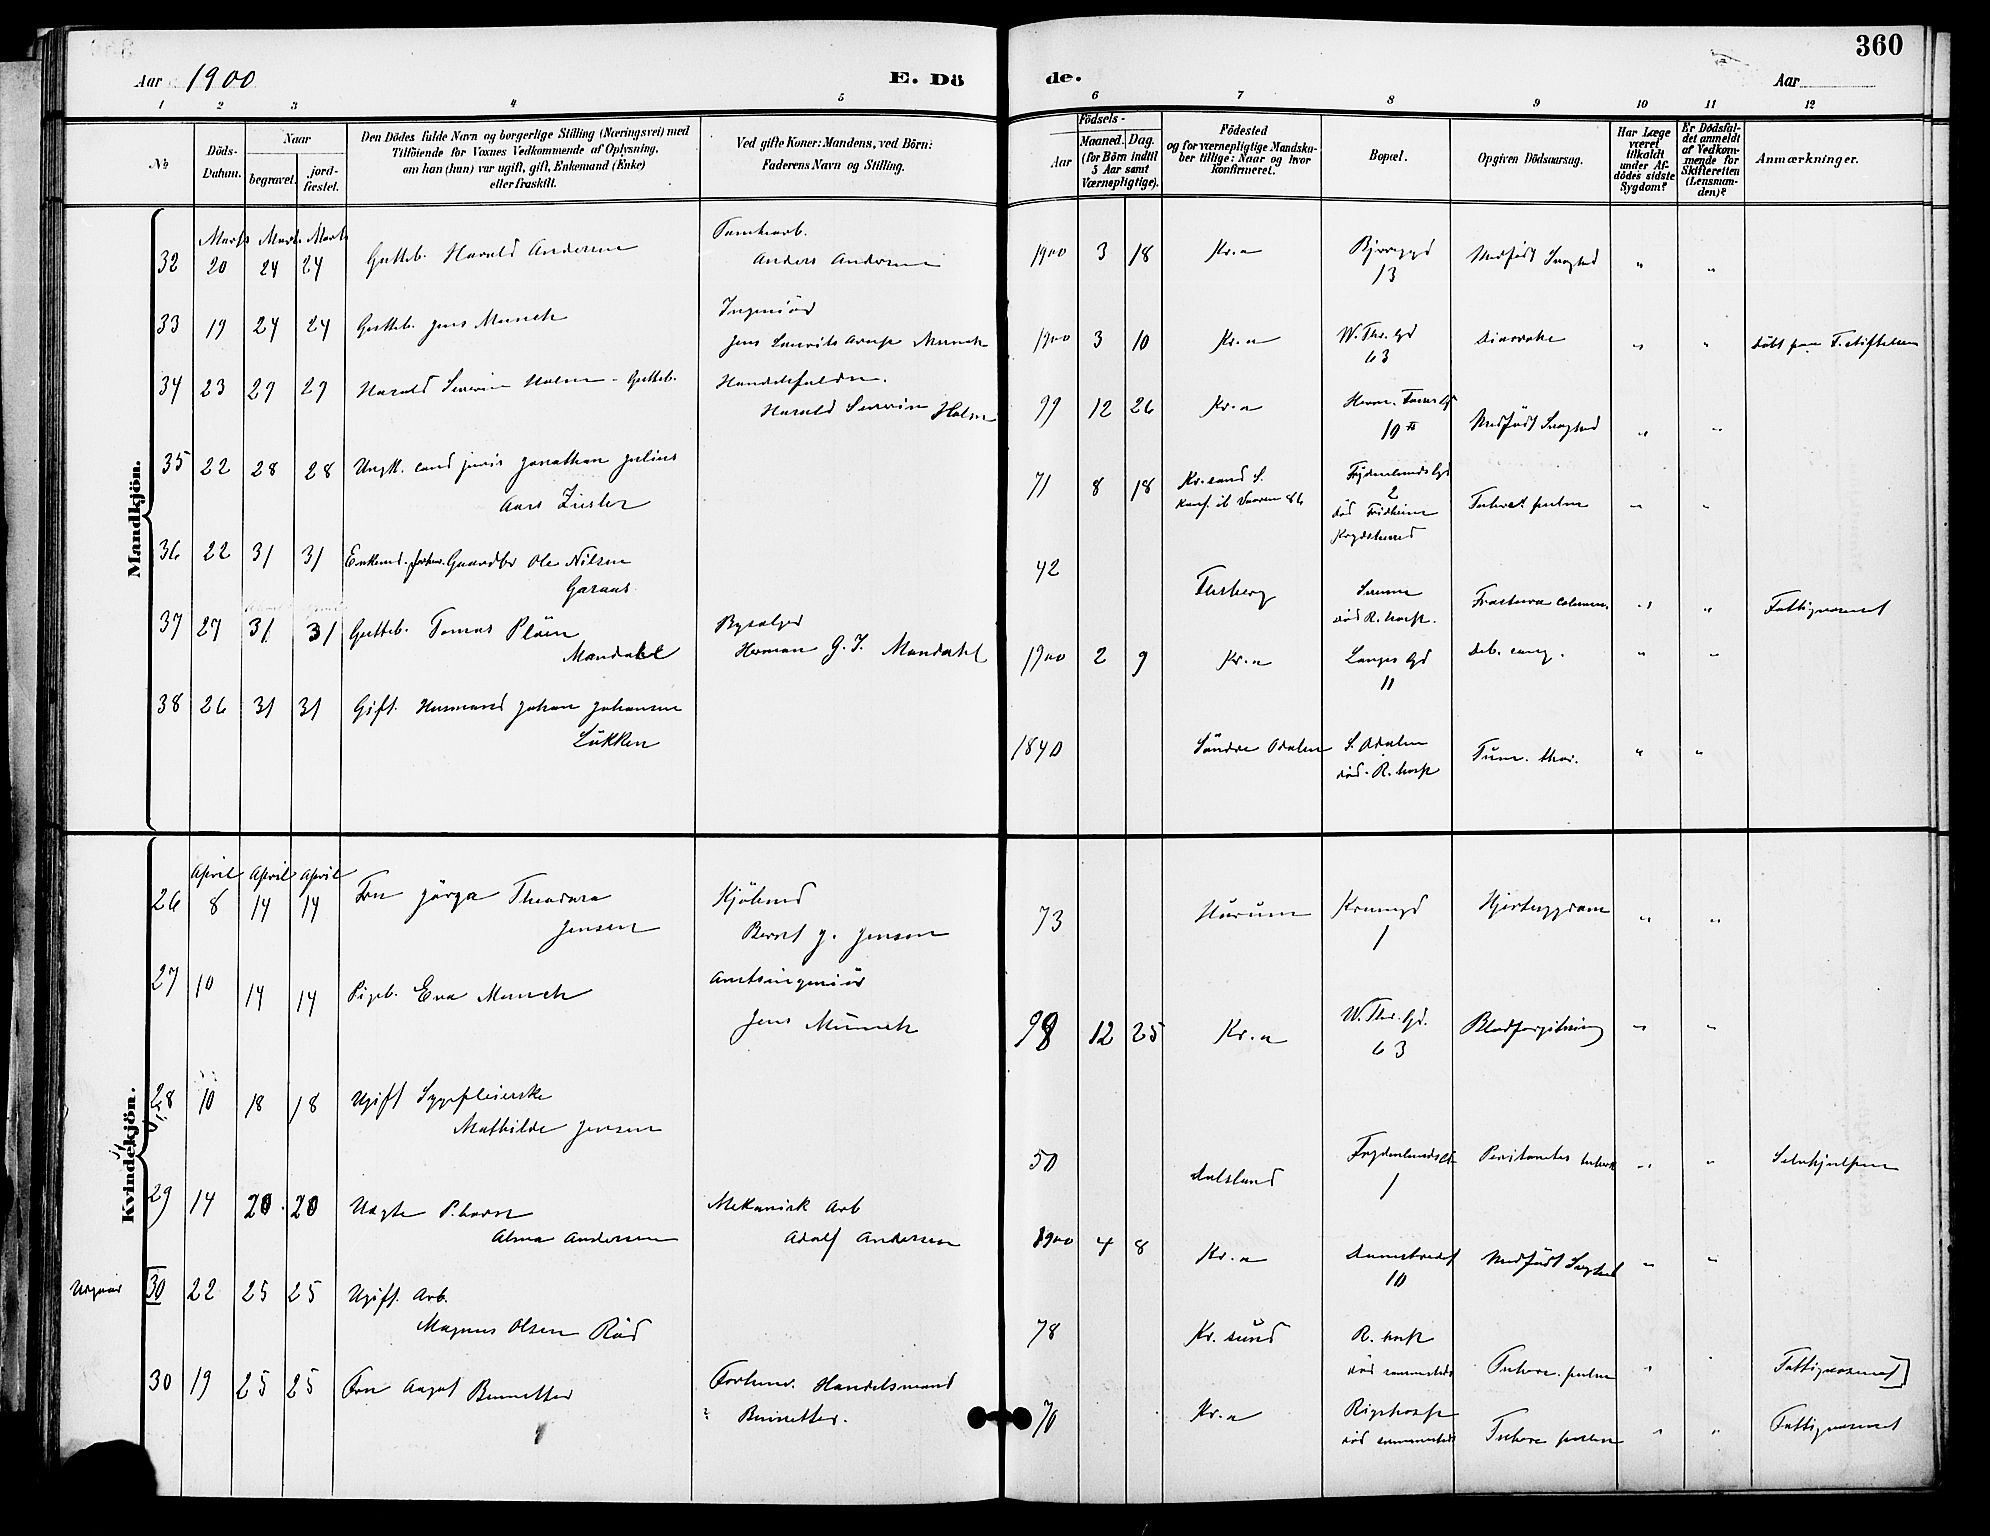 360
Aar 1900
E. Dö
de.
Aar
1 2 3 4 5 6 7 8 9 10 11 12
No
Döds-Datum.
Naar
begravet.
jord-fæstet.
Den Dödes fulde Navn og borgerlige Stilling (Næringsvei) med
Tilföiende for Voxnes Vedkommende af Oplysning,
om han (hun) var ugift, gift, Enkemand (Enke)
eller fraskilt.
Ved gifte Koner: Mandens, ved Börn:
Faderens Navn og Stilling.
Födsels-
Aar
Maaned. Dag.
(for Börn indtil
5 Aar samt
Værnepligtige).
Födested
og for værnepligtige Mandska-
ber tillige: Naar og hvor
konfirmeret.
Bopæl.
Opgiven Dödsaarsag.
Har Læge
været
tilkaldt
under Af-
dödes sidste
Sygdom?
Er Dödsfal-
det anmeldt
af Vedkom-
mende for
Skifteretten
(Lensman-
den)?
Anmærkninger.
Mandkjön.
Marts Marts Marts
32 20 24 24 Gutteb. Harald Andersen
Anders Andersen
1900 3 18 Kr.a
13
Medfødt Svaghed " "
33 19 24 24 Gutteb. Jens Munch
Ingeniör
Jens Laurits Arup Munch
1900 3 10 Kr.a W. Thr. Gd
63
Diarrohe " " Döbt paa F. stiftelsen
34 23 29 29 Harald Severin Holm - Gutteb.
Harald Severin Holm
99 12 26 Kr.a
10 II
Medfødt Svaghed " "
35 22 28 28 Ungk. cand juris Jonathan Julius
Aars
71 8 18 Kr.sand S.
Konf. ib Vaaren 86
Frydenlunds Gd
2
död Fridheim
Krydsherred
Tuberc. pulm " "
36 22 31 31 Enkemd. forhen. Gaardbr Ole Nilsen
Garaas
42 Flesberg
död R. hosp.
Fractura column. " " Fattigvæsenet
37 27 31 31 Gutteb. Tomas Plöen
Mandahl
Bysælger
Herman G. J. Mandahl
1900 2 9 Kr.a Langes Gd
11
Deb. cong. " "
38 26 31 31 Gift. Husmand Johan Johansen
Lökken
1840 Söndre Odalen S. Odalen
död R. hosp
Tum. thor. " "
Kvindekjön.
April April April
26 8 14 14 Fru Jörga Theodora
Jensen
Kjöbmd
Bernt J. Jensen
73 Hurum Kromgd
1
Hjertesygdom " "
27 10 14 14 Pigeb. Eva Munch
Amtsingeniör
Jens Munch
98 12 25 Kr.a W. Thr. Gd.
63
Blodforgiftning " "
28 10 18 18 Ugift Sygepleierske
Mathilde Jensen
50 Dalsland Frydenlunds Gd
1
Peritonitis tuberk " " Selvhjælpen
29 14 20 20 Uægte P.barn
Alma Andersen
Mekanisk Arb
Adolf Andersen
1900 4 8 Kr.a Dunkebredst
10
Medfödt Svaghed " "
30 22 25 25 Ugift. Arb.
Magnus Olsen Röd
78 Kr.sund R. hosp
död sammesteds
Tuberc. pulm " " Fattigvæsenet]
30 19 25 25 Fru Aagot Bennetter
Forhenv. Handelsmand
? Bennetter.
70 Kr.a Rigshosp
död sammesteds
Tuberc pulm " " Fattigvæsenet